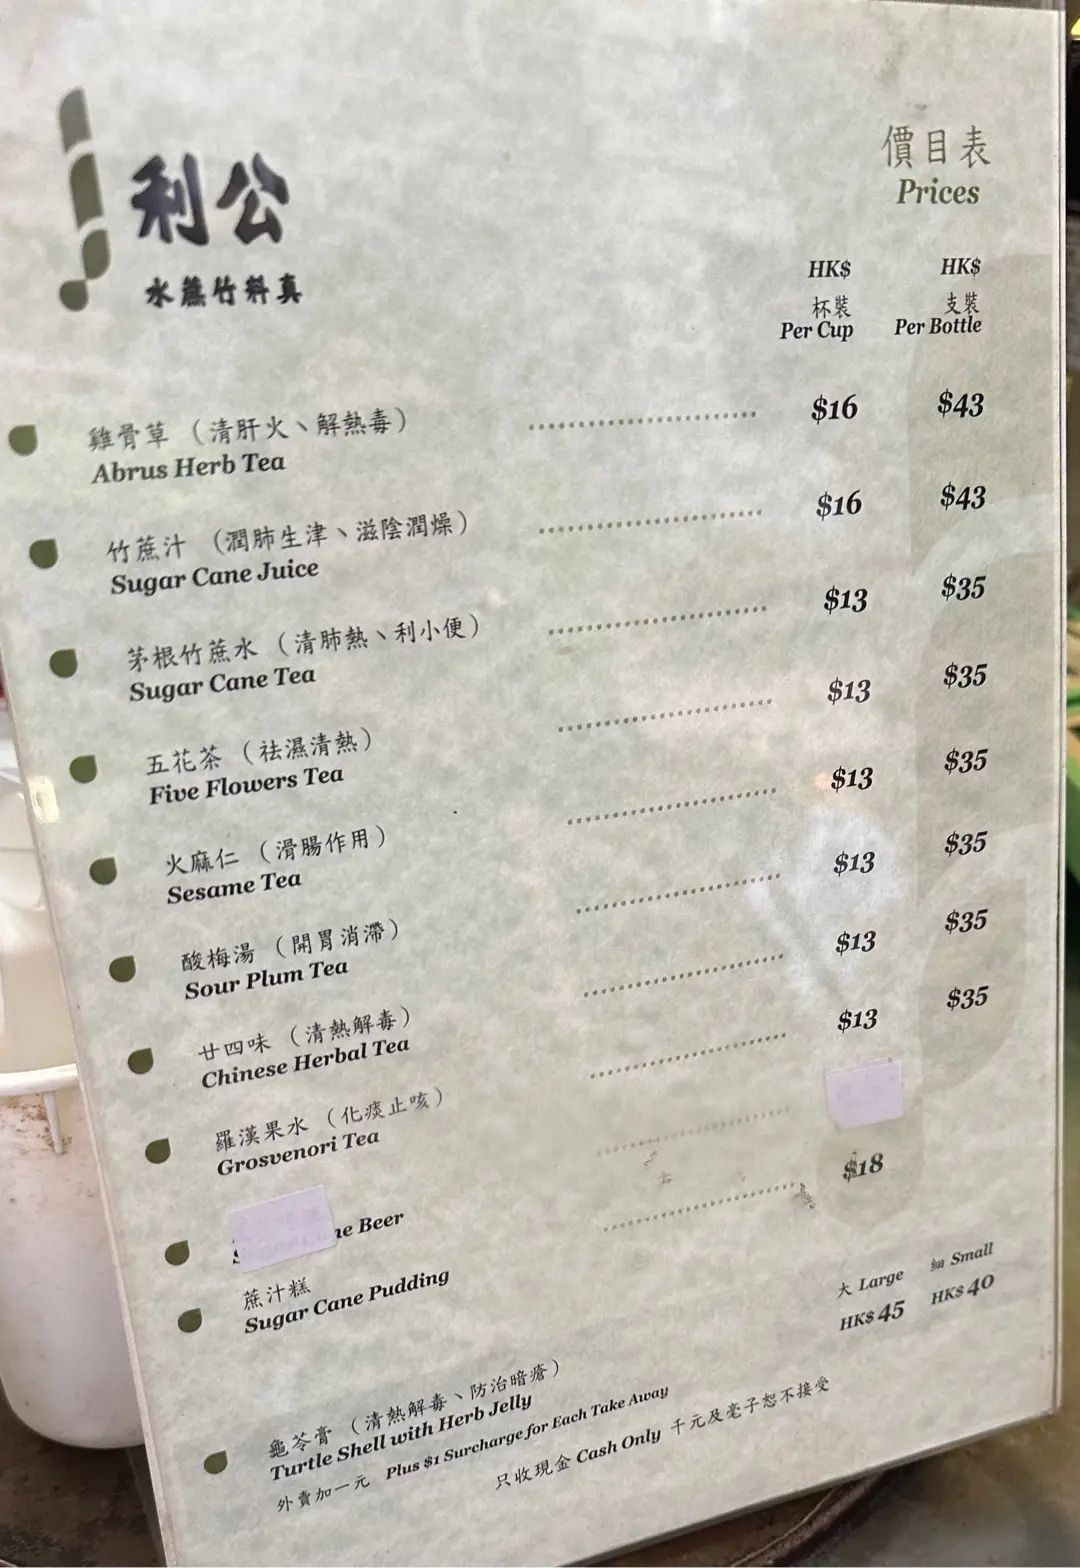 公利
真料竹蔗水
價目表
Prices
HK$ HK$
杯裝 支裝
Per Cup Per Bottle
雞骨草 （清肝火、解熱毒） $16 $43
Abrus Herb Tea
竹蔗汁 （潤肺生津、滋陰潤燥） $16 $43
Sugar Cane Juice
茅根竹蔗水 （清肺熱、利小便） $13 $35
Sugar Cane Tea
五花茶 （祛濕清熱） $13 $35
Five Flowers Tea
火麻仁 （滑腸作用） $13 $35
Sesame Tea
酸梅湯 （開胃消滯） $13 $35
Sour Plum Tea
廿四味 （清熱解毒） $13 $35
Chinese Herbal Tea
羅漢果水 （化痰止咳） $13 $35
Grosvenori Tea
Beer
蔗汁糕 $18
Sugar Cane Pudding
大 Large 細 Small
HK$ 45 HK$ 40
龜苓膏 （清熱解毒、防治暗瘡）
Turtle Shell with Herb Jelly
外賣加一元 Plus $1 Surcharge for Each Take Away
只收現金 Cash Only 千元及毫子恕不接受